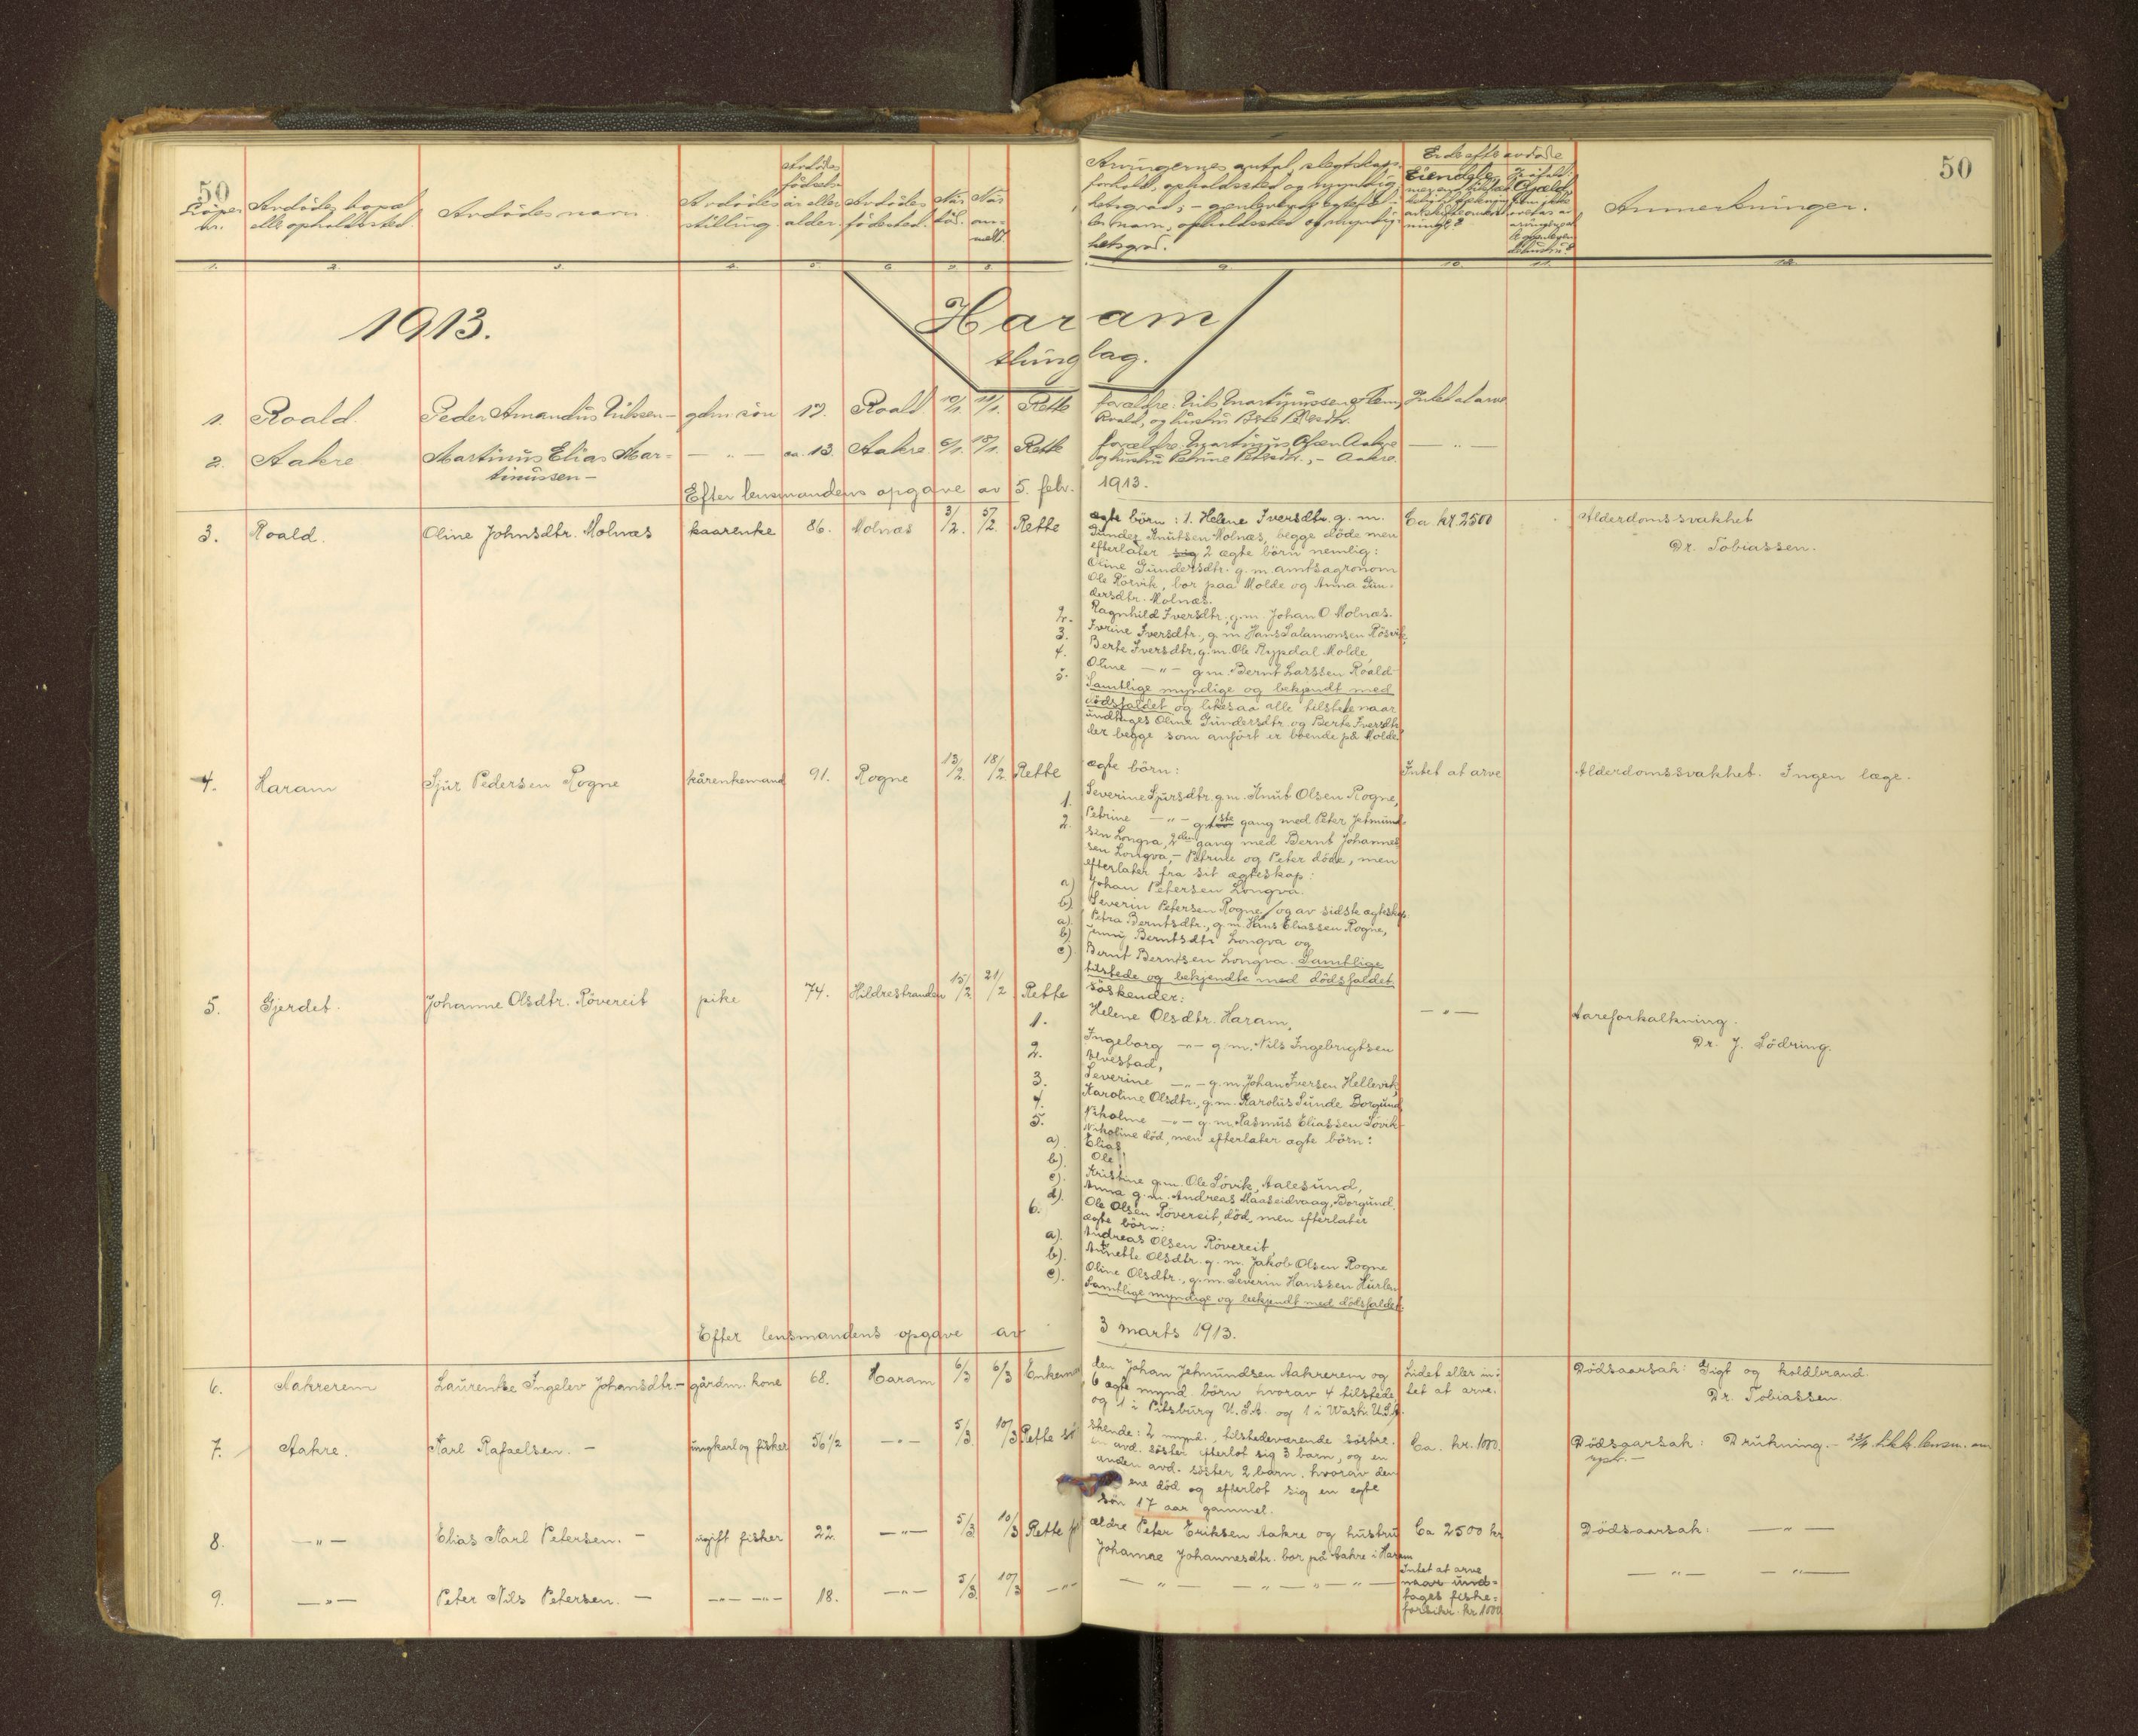 50
50
Löpe nr.
Avdödes bopæl
eller opholdssted.
Avdödes navn
Avdödes
stilling.
Avdödes
födsels-
år eller
alder.
Avdödes
födested.
Når
död.
Når
an-
meldt.
Arvingernes antal, slegtskaps-
forhold, opholdssted og myndig-
hetsgrad; - gjenlevende egtefæl-
les navn, opholdssted og myndig-
hetsgrad.
Er der efter avdöde
Eiendele,
Gjæld,
Anmerkninger.
1. 2. 3. 4. 5. 6. 7. 8. 9. 10. 11. 12.
1913.
Haram
thinglag.
1. Roald. Peder Amandus Nilssen – gdm. sön 17. Roald 10/1. 11/1. Rette forældre: Nils Martinussen Flem, Intet at arve
Roald, og hustru Berte Pedersdtr.
2. Aakre Martinus Elias Mar= — „ — ca. 13. Aakre. 6/1. 18/1. Rette forældre: Martinus Olsen Aakre — „ —
tinussen – og hustru Petrine Petersdtr., – Aakre.
Efter lensmandens opgave av 5. febr. 1913.
3. Roald. Oline Johnsdtr. Molnæs kaarenke 86. Molnæs 3/2. 5/2. Rette ægte börn: 1. Helene Iversdtr. g. m. Ca. kr. 2500 Alderdomssvakhet
Gunder Knutsen Molnæs, begge döde men
Dr. Tobiassen.
efterlater sig 2 ægte börn nemlig:
Oline Gundersdtr. g. m. amtsagronom
Ole Rörvik, bor paa Molde og Anna Gun-
dersdtr. Molnæs.
2. Ragnhild Iversdtr., g. m. Johan O. Molnæs.
3. Iverine Iversdtr., g. m. Hans Salamonsen Rösvik,
4. Berte Iversdtr. g. m. Ole Rypdal Molde,
5. Oline — „ — g. m. Bernt Larssen Roald
Samtlige myndige og bekjendt med
dödsfaldet og likesaa alle tilstede naar
undtages Oline Gundersdtr. og Berte Iversdtr.
der begge som anfört er boende på Molde
4. Haram Sjur Pedersen Rogne kårenkemand 91. Rogne 13/2. 18/2 Rette ægte börn: Intet at arve Alderdomssvakhet. Ingen læge.
1. Severine Sjursdtr. g. m. Knut Olsen Rogne,
2. Petrine — „ — g. 1ste gang med Peter Jetmund-
sen Longva, 2den gang med Bernt Johannes
sen Longva, – Petrine og Peter döde, men
efterlater fra sit ægteskap:
a) Johan Petersen Longva.
b) Severin Petersen Rogne / og av sidste ægteskap:
a). Petra Berntsdtr., g. m. Hans Eliassen Rogne,
b) Jenny Berntsdtr Longva og
c) Bernt Berntsen Longva. Samtlige
tilstede og bekjendte med dödsfaldet.
5. Gjerdet. Johanne Olsdtr. Rövereit pike 74. Hildrestranden 15/2 21/2 Rette söskender: — „ — Aareforkalkning.
Dr. J. Södring.
1. Helene Olsdtr. Haram,
2. Ingeborg — „ — g. m. Nils Ingebrigtsen
Ulvestad,
3. Severine — „ — g. m. Johan Iversen Hellevik,
4. Karoline Olsdtr., g. m. Karolus Sunde Borgund
5. Nikoline — „ — g. m. Rasmus Eliassen Sövik
Nikoline död, men efterlater ægte börn:
a). Elias
b). Ole
c). Kristine g. m. Ole Sövik, Aalesund,
d). Anna g. m. Andreas Maaseidvaag, Borgund.
6. Ole Olsen Rövereit, död, men efterlater
ægte börn:
a). Andreas Olsen Rövereit,
b). Annette Olsdtr. g. m. Jakob Olsen Rogne
c). Oline Olsdtr., g. m. Severin Hanssen Hurlen
Samtlige myndige og bekjendt med dödsfaldet.
Efter lensmandens opgave av 3 marts 1913.
6. Aakrerem Laurentse Ingelev Johansdtr. – gårdm. kone 68. Haram 6/3 6/3 Enkeman den Johan Jetmundsen Aakrerem og Lidet eller in= Dödsaarsak: Gigt og koldbrand.
6 ægte mynd. börn hvorav 4 tilstede tet at arve. Dr. Tobiassen.
og 1 i Pitsburg U.S.A. og 1 i Wash. U.S.A.
7. Aakre. Karl Rafaelsen. – ungkarl og fisker 56 1/2 — „ — 5/3 10/3 Rette sö skende: 2 mynd. tilstedeværende söstre. Ca. kr. 1000. Dödsaarsak: Drukning. –
en avd. söster efterlot sig 3 barn, og en
anden avd. söster 2 barn. hvorav den
ene död og efterlot sig en ægte
sön 17 aar gammel.
8. — „ — Elias Karl Petersen. – ugift fisker 22. — „ — 5/3 10/3 Rette for ældre Peter Eriksen Aakre og hustru Ca 2500 kr Dödsaarsak: — „ —
Johanne Johannesdtr. bor på Aakre i Haram
9. — „ — Peter Nils Petersen. – — „ — „ — 18. — „ — 5/3. 10/3 — „ — — „ — — „ — „ — Intet at arve — „ — — „ —
naar und=
tages fiske=
forsikr. kr 1000